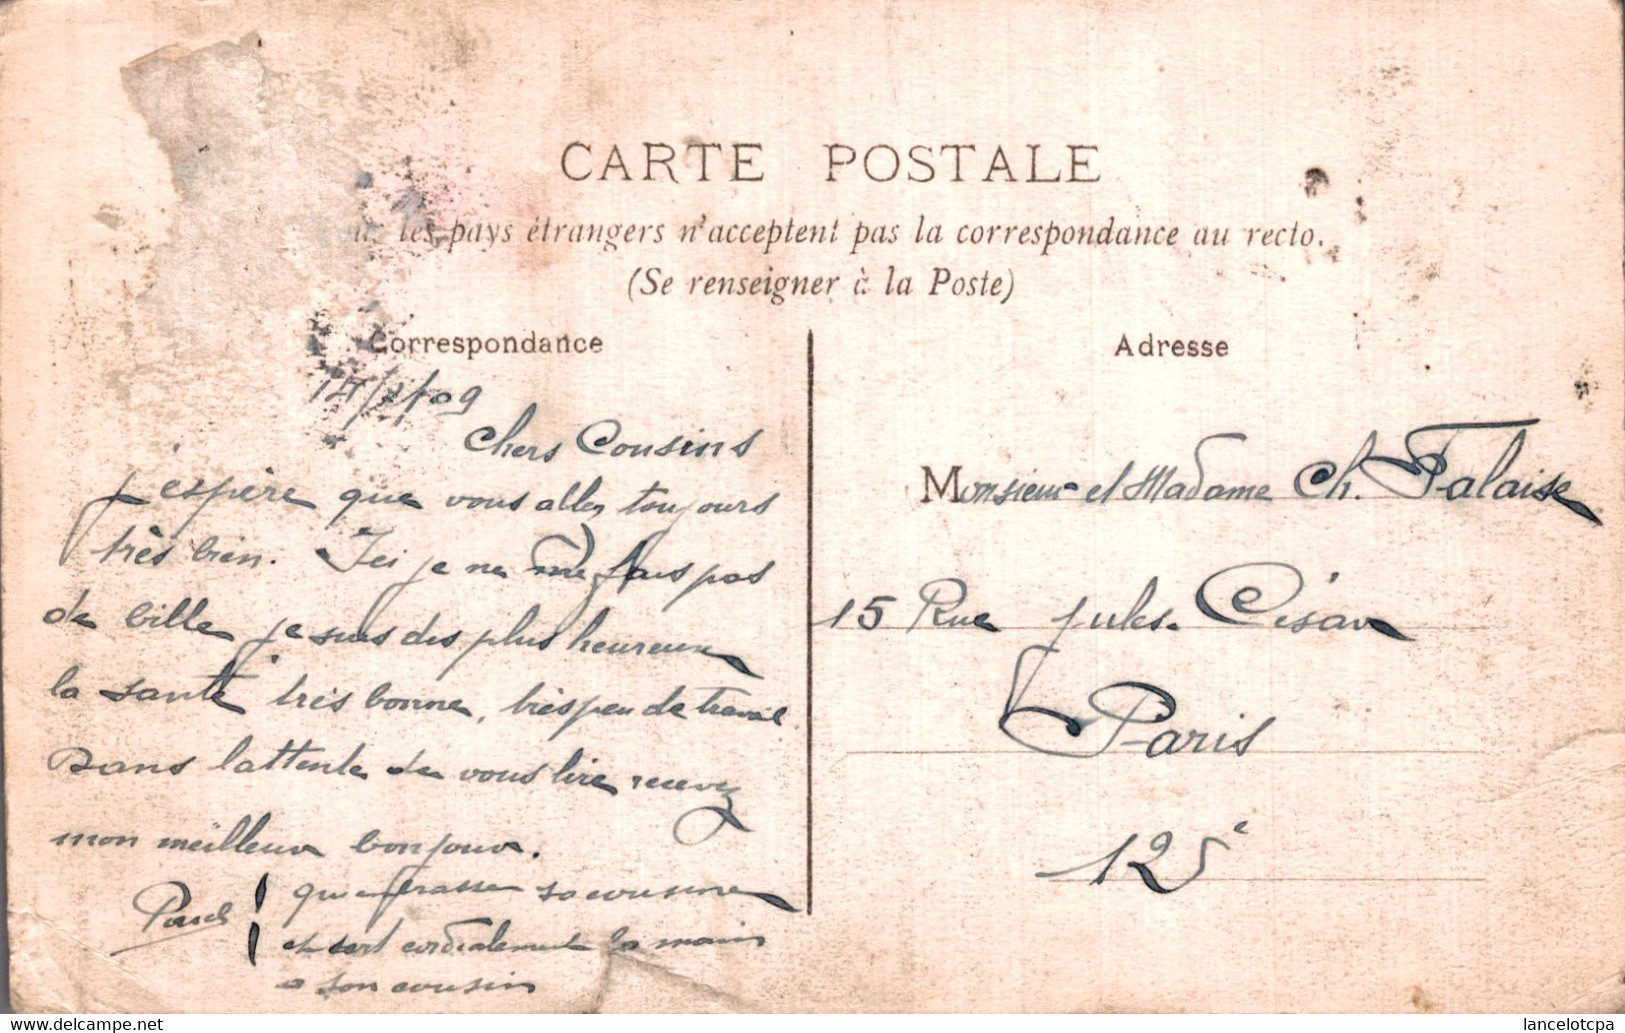 CARTE POSTALE
les pays étrangers n'acceptent pas la correspondance au recto.
(Se renseigner à la Poste)
Correspondance
Chers Cousins
j'espère que vous allez toujours
très bien. Ici je ne me fais pas
de bille je suis des plus heureux
la santé très bonne, très peu de travail
Dans l'attente de vous lire recevez
mon meilleur bonjour.
Paul
qui embrasse sa cousine
et sert cordialement la main
a son cousin
Adresse
Monsieur et Madame Ch. Falaise
15 Rue Jules César
Paris
12e
lancelotcpa